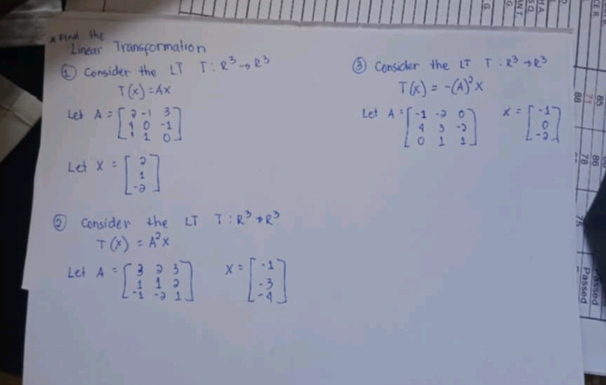 * Find the
Linear Transformation
① Consider the LT T: R³→R³
T(x) = Ax
Let A = [2 -1 3
4 0 -1
1 1 0]
Let X = [2
1
-2]
② Consider the LT T: R³→R³
T(x) = A²x
Let A = [3 2 3
1 1 2
-1 -2 1]
X = [-1
-3
-4]
③ Consider the LT T: R³→R³
T(x) = -(A)²x
Let A = [-1 -2 0
4 3 -2
0 1 1]
X = [-1
0
-2]
85
88
71
86
78
75
Passed
Passed